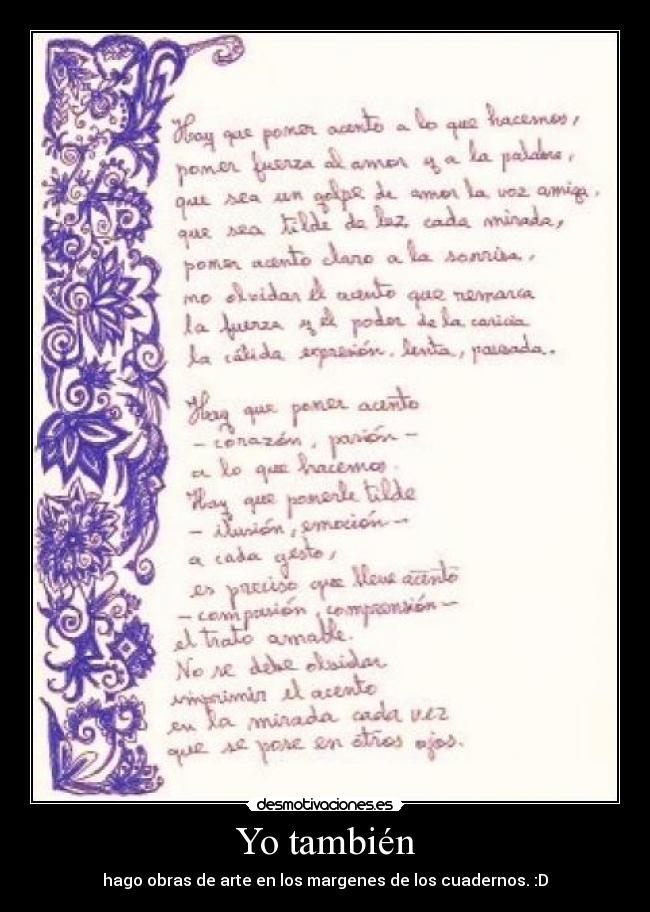 Hay que poner acento a lo que hacemos,
poner fuerza al amor y a la palabra,
que sea un golpe de amor la voz amiga,
que sea tilde de luz cada mirada,
poner acento claro a la sonrisa,
no olvidar el acento que remarca
la fuerza y el poder de la caricia
la cálida expresión, lenta, pausada.
Hay que poner acento
- corazón, pasión -
a lo que hacemos.
Hay que ponerle tilde
- ilusión, emoción -
a cada gesto,
es preciso que lleve acento
- compasión, comprensión -
el trato amable.
No se debe olvidar
imprimir el acento
en la mirada cada vez
que se pose en otros ojos.
desmotivaciones.es
Yo también
hago obras de arte en los margenes de los cuadernos. :D